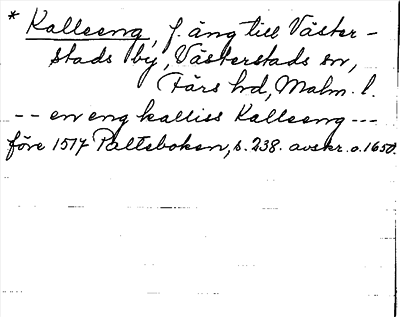 * Kalleeng, f. äng till Väster-
stads by, Västerstads sn,
Färs hd, Malm. l.
-- en eng kalliss Kalleeng ---
före 1517 Palteboken, s. 238. avskr. o. 1650.